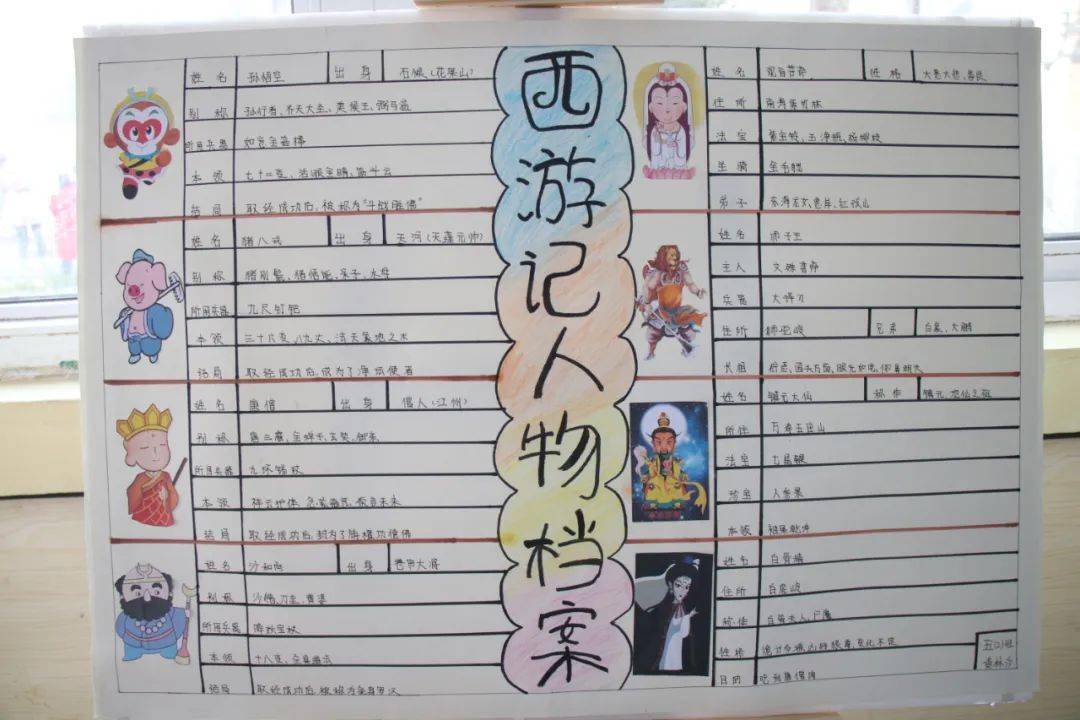 西游记人物档案
姓名 孙悟空 出身 石猴(花果山)
别称 孙行者、齐天大圣、美猴王、弼马温
所用兵器 如意金箍棒
本领 七十二变、火眼金睛、筋斗云
结局 取经成功后,被称为"斗战胜佛"
姓名 猪八戒 出身 天河(天蓬元帅)
别称 猪刚鬣、猪悟能、呆子、
所用兵器 九尺钉耙
本领 三十六变、
结局 取经成功后,成为了净坛使者
姓名 唐僧 出身 僧人(江州)
别称 唐三藏、金蝉子、玄奘、御弟
所用兵器 九环锡杖
本领
结局 取经成功后,封为了旃檀功德佛
姓名 沙和尚 出身 卷帘大将
别称 沙僧、
所用兵器 降妖宝杖
本领 十八变、
结局 取经成功后,被称为金身罗汉
姓名 观音菩萨 性格 大慈大悲、
住所 南海紫竹林
法宝 紫金铃、玉净瓶、杨柳枝
坐骑 金毛犼
弟子 惠岸、红孩儿
姓名 狮子王
主人 文殊菩萨
兵器 大捍刀
住所 狮驼岭 兄弟 白象、大鹏
长相
姓名 镇元大仙 称号 镇元、地仙之祖
所住 万寿五庄山
法宝 七星
珍宝 人参果
本领 袖里乾坤
姓名 白骨精
住所 白虎岭
称佳 白骨夫人、尸魔
性格 诡计多端、变化不定
目的 吃到唐僧肉